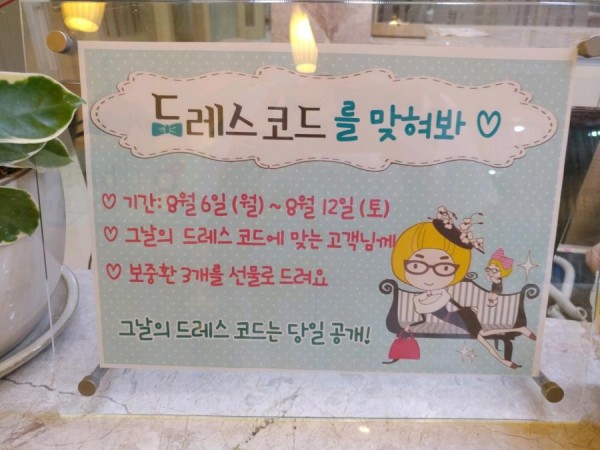 드레스 코드를 맞혀봐 ♡
♡ 기간: 8월 6일 (월) ~ 8월 12일 (토)
♡ 그날의 드레스 코드에 맞는 고객님께
♡ 보중환 3개를 선물로 드려요
그날의 드레스 코드는 당일 공개!